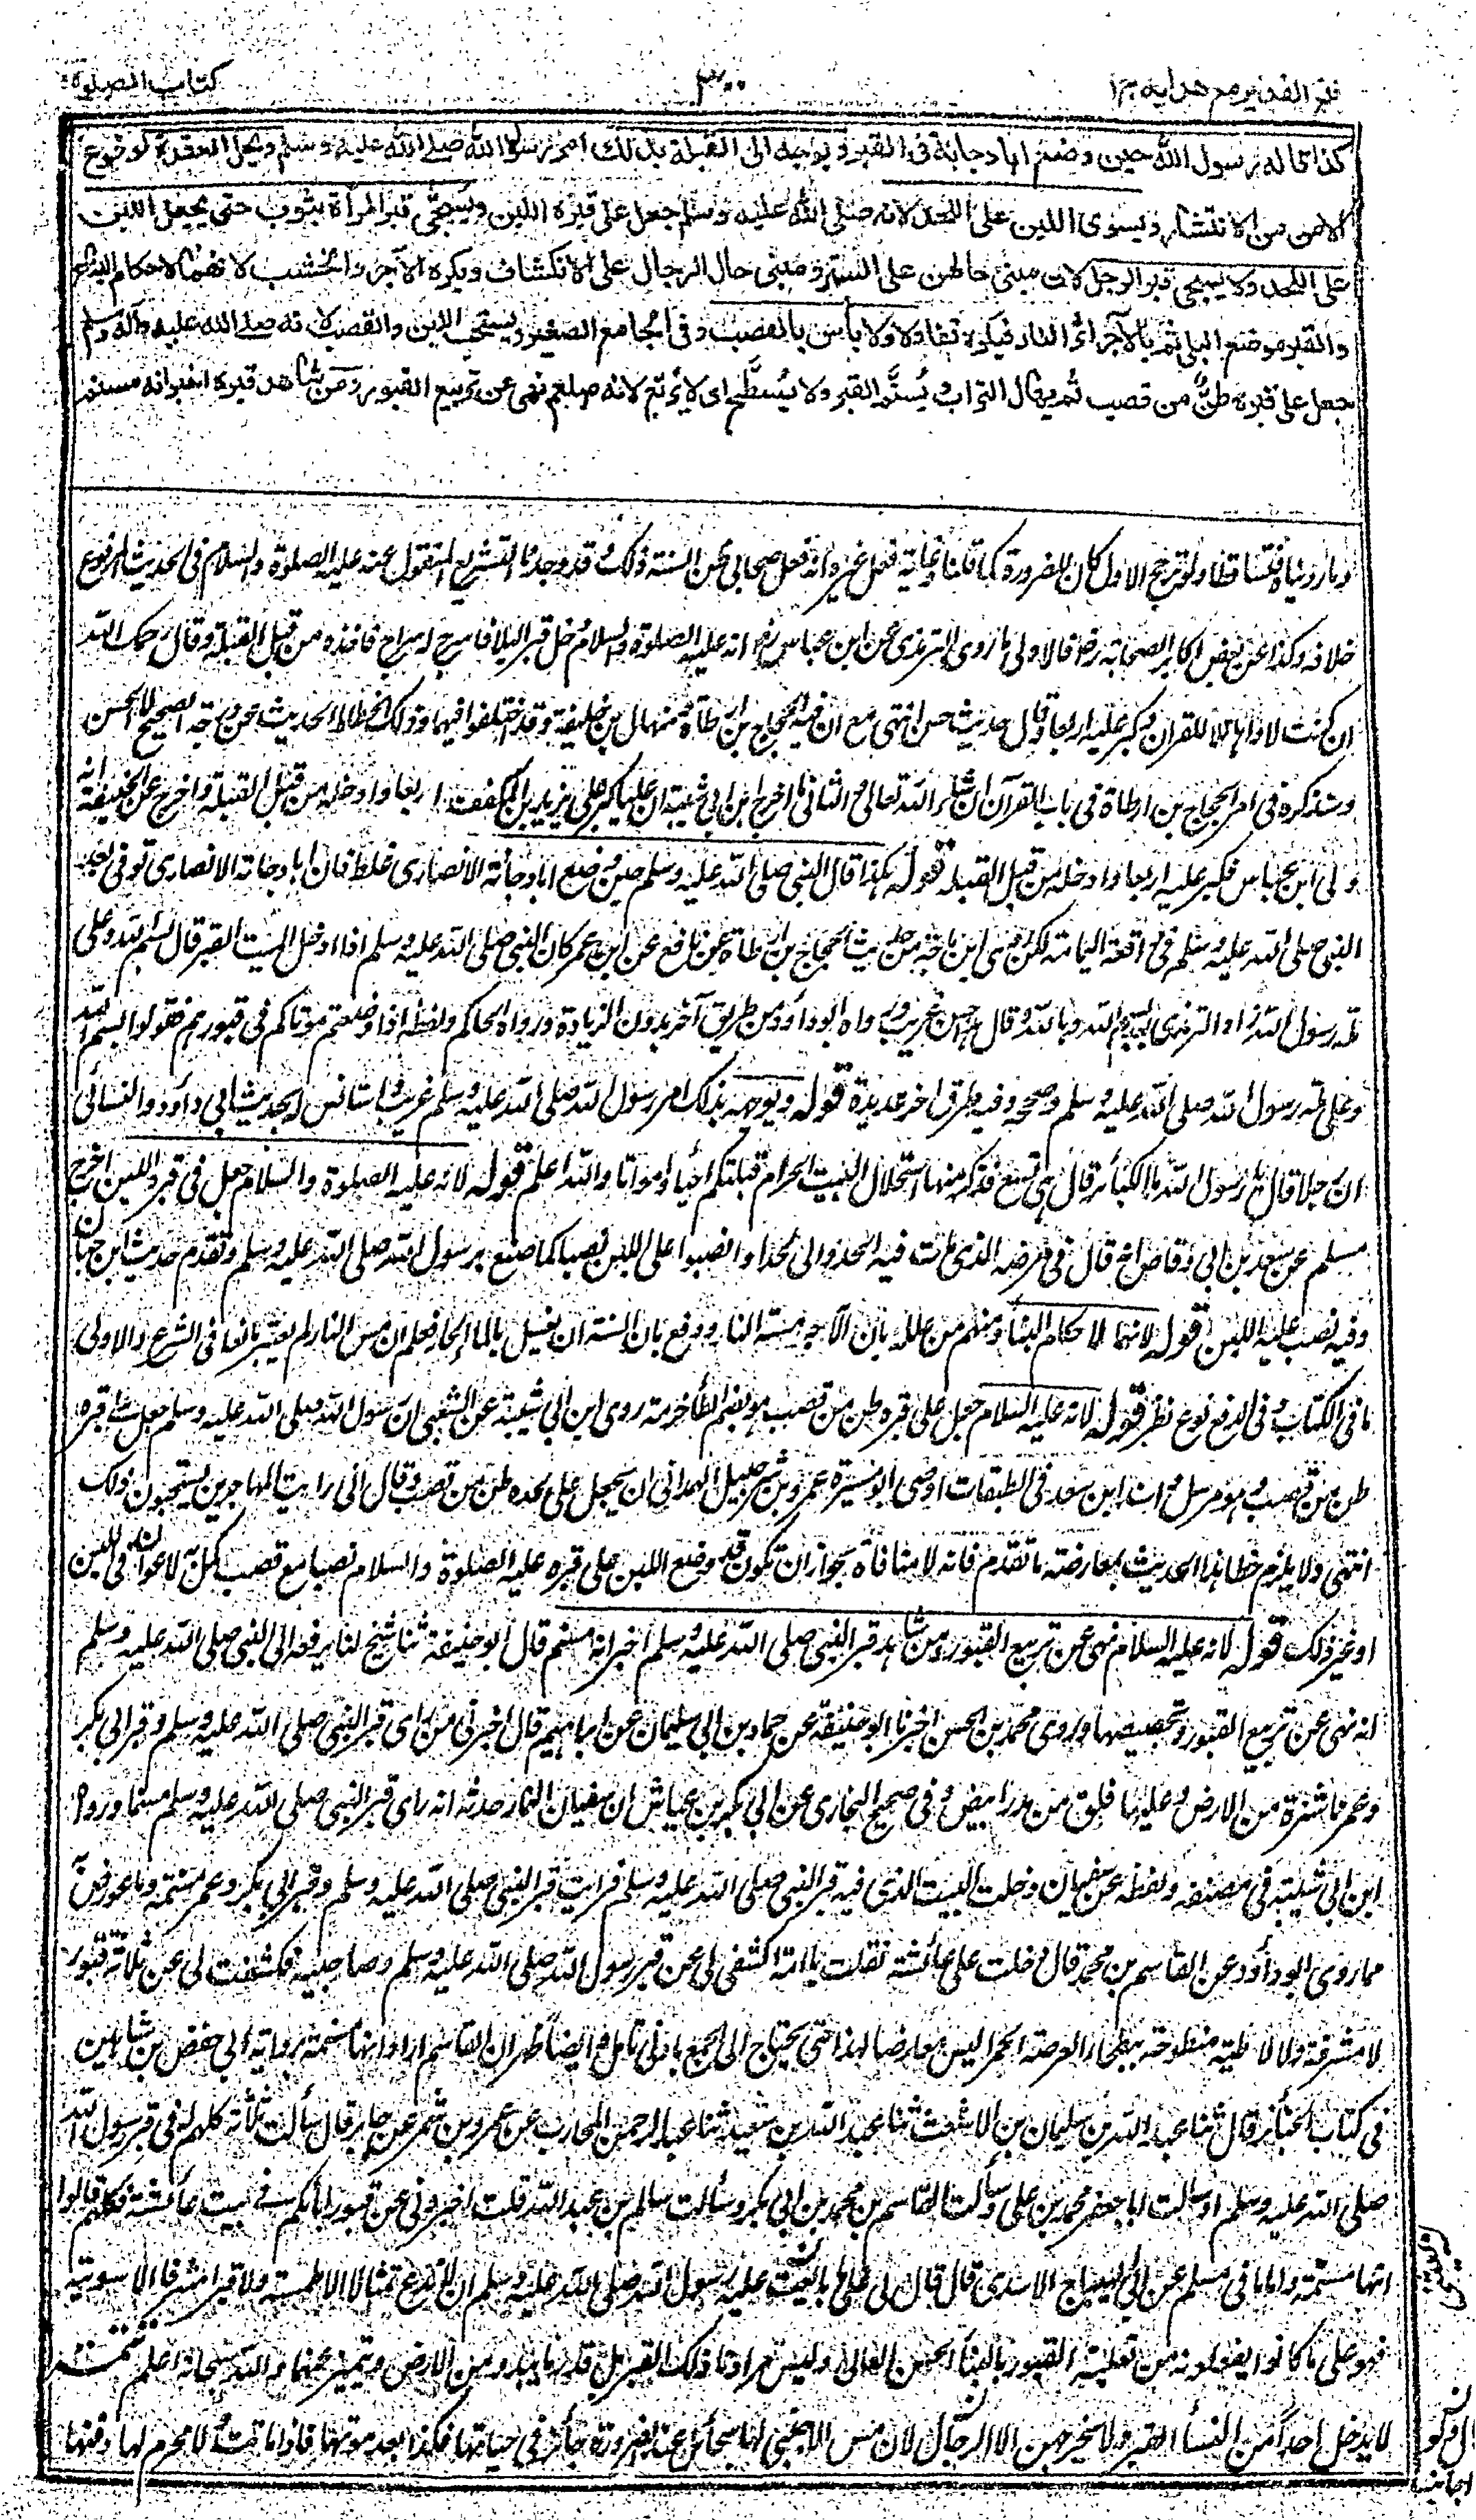 فتح القدير مع هدايه ج١
٣٠٠
كتاب الصلوة
كذا قاله رسول الله حين وضع ابا دجانة فى القبر ويوجه الى القبلة بذلك امر رسول الله صلى الله عليه وسلم ويحل العقدة لوقوع
الامن من الانتشار ويسوى اللبن على اللحد لانه صلى الله عليه وسلم جعل على قبره اللبن ويسجّى قبر المرأة بثوب حتى يجعل اللبن
على اللحد ولا يسجى قبر الرجل لان مبنى حالهن على الستر ومبنى حال الرجال على الانكشاف ويكره الآجر والخشب لانهما لاحكام البناء
والقبر موضع البلى ثم بالآجر اثر النار فيكره تفاولا ولا بأس بالقصب وفى الجامع الصغير ويستحب اللبن والقصب لانه صلى الله عليه وآله وسلم
جعل على قبره طنٌّ من قصب ثم يهال التراب ويُسنَّم القبر ولا يُسطَّح اى لا يُربّع لانه صلعم نهى عن تربيع القبور ومن شاهد قبره اخبر انه مسنم
وما رويناه فتساقطا ولو ترجح الاول كان للضرورة كما قلنا وغاية فعل غيره انه فعل صحابى ظن السنة ذلك وقد وجدنا التشريع المنقول عنه عليه الصلوة والسلام فى الحديث المرفوع
خلافه وكذا عن بعض اكابر الصحابة رض فالاولى ما روى الترمذى عن ابن عباس رض انه عليه الصلوة والسلام دخل قبرا ليلا فاسرج له سراج فاخذه من قبل القبلة وقال رحمك الله
ان كنت لاواها تلاء للقرآن وكبر عليه اربعا وقال حديث حسن انتهى مع ان فيه الحجاج بن ارطاة ومنهال بن خليفة وقد اختلفوا فيهما وذلك يحط الحديث عن درجة الصحيح لا الحسن
وسنذكره فى امر الحجاج بن ارطاة فى باب القرآن ان شاء الله تعالى والثانى ما اخرج ابن ابى شيبة ان عليا كبر على يزيد بن المكفف اربعا وادخله من قبل القبلة واخرج عن ابن الحنفية انه
ولى ابن عباس فكبر عليه اربعا وادخله من قبل القبلة قوله هكذا قال النبى صلى الله عليه وسلم حين وضع ابا دجانة الانصارى غلط فان ابا دجانة الانصارى توفى بعد
النبى صلى الله عليه وسلم فى واقعة اليمامة لكن روى ابن ماجة من حديث الحجاج بن ارطاة عن نافع عن ابن عمر كان النبى صلى الله عليه وسلم اذا ادخل الميت القبر قال بسم الله وعلى
ملة رسول الله زاد الترمذى بعد بسم الله وبالله وقال حسن غريب ورواه ابو داود من طريق آخر بدون الزيادة ورواه الحاكم ولفظه اذا وضعتم موتاكم فى قبورهم فقولوا بسم الله
وعلى ملة رسول الله صلى الله عليه وسلم وصححه وفيه طرق اخر عديدة قوله ويوجه بذلك امر رسول الله صلى الله عليه وسلم غريب واستانس له بحديث ابى داود والنسائى
ان رجلا قال يا رسول الله ما الكبائر قال هى تسع فذكر منها استحلال البيت الحرام قبلتكم احياء وامواتا والله اعلم قوله لانه عليه الصلوة والسلام جعل فى قبره اللبن اخرج
مسلم عن سعد بن ابى وقاص رض انه قال فى مرضه الذى مات فيه الحدوا لى لحدا وانصبوا على اللبن نصبا كما صنع برسول الله صلى الله عليه وسلم وتقدم حديث ابن حبان
وفيه نصب عليه اللبن قوله لانهما لاحكام البناء ومنهم من علله بان الآجر مسته النار ودفع بان السنة ان يغسل بالماء الحار فعلم ان مس النار لم يعتبر مانعا فى الشرع والاولى
ما فى الكتاب وفى الدفع نوع نظر قوله لانه عليه السلام جعل على قبره طن من قصب هو بضم الطاء حزمة روى ابن ابى شيبة عن الشعبى ان رسول الله صلى الله عليه وسلم جعل على قبره
طن من قصب وهو مرسل واسند ابن سعد فى الطبقات اوصى ابو ميسرة عمرو بن شرحبيل الهمدانى ان يجعل على لحده طن من قصب وقال انى رايت المهاجرين يستحبون ذلك
انتهى ولا يلزم خطأ هذا الحديث بمعارضته ما تقدم فانه لا منافاة بجواز ان يكون قد وضع اللبن على قبره عليه الصلوة والسلام نصبا مع قصب كمل به لاعواز فى اللبن
او غير ذلك قوله لانه عليه السلام نهى عن تربيع القبور ومن شاهد قبر النبى صلى الله عليه وسلم اخبر انه مسنم قال ابو حنيفة ثنا شيخ لنا يرفعه الى النبى صلى الله عليه وسلم
انه نهى عن تربيع القبور وتجصيصها وروى محمد بن الحسن اخبرنا ابو حنيفة عن حماد بن ابى سليمان عن ابراهيم قال اخبرنى من راى قبر النبى صلى الله عليه وسلم وقبر ابى بكر
وعمر ناشزة من الارض وعليها فلق من مدر ابيض وفى صحيح البخارى عن ابى بكر بن عياش ان سفيان التمار حدثه انه راى قبر النبى صلى الله عليه وسلم مسنما ورواه
ابن ابى شيبة فى مصنفه ولفظه عن سفيان دخلت البيت الذى فيه قبر النبى صلى الله عليه وسلم فرايت قبر النبى صلى الله عليه وسلم وقبر ابى بكر وعمر مسنمة وما عورض به
مما روى ابو داود عن القاسم بن محمد قال دخلت على عائشة فقلت يا امه اكشفى لى عن قبر رسول الله صلى الله عليه وسلم وصاحبيه فكشفت لى عن ثلاثة قبور
لا مشرفة ولا لاطية مبطوحة ببطحاء العرصة الحمراء ليس معارضا لهذا حتى يحتاج الى الجمع بادنى تامل وايضا ظهر ان القاسم اراد انها مسنمة برواية ابى حفص بن شاهين
فى كتاب الجنائز قال ثنا عبد الله بن سليمان بن الاشعث ثنا عبد الله بن سعيد ثنا عبد الرحمن المحاربى عن عمرو بن شمر عن جابر قال سألت ثلاثة كلهم له فى قبر رسول الله
صلى الله عليه وسلم اب سألت ابا جعفر محمد بن على وسألت القاسم بن محمد بن ابى بكر وسألت سالم بن عبد الله قلت اخبرونى عن قبور آبائكم فى بيت عائشة فكلهم قالوا
انها مسنمة واما ما فى مسلم عن ابى الهياج الاسدى قال قال لى على ابعثك على ما بعثنى عليه رسول الله صلى الله عليه وسلم ان لا تدع تمثالا الا طمسته ولا قبرا مشرفا الا سويته
فهو على ما كانوا يفعلونه من تعلية القبور بالبناء الحسن العالى وليس مرادنا ذلك القبر بل قدر ما يبدو من الارض ويتميز عنها والله سبحانه اعلم تتمة
لا يدخل احدا من النساء القبر ولا يخرجهن الا الرجال لان مس الاجنبى لها بحائل عند الضرورة جائز فى حياتها فكذا بعد موتها فاذا ماتت ولا محرم لها دفنها